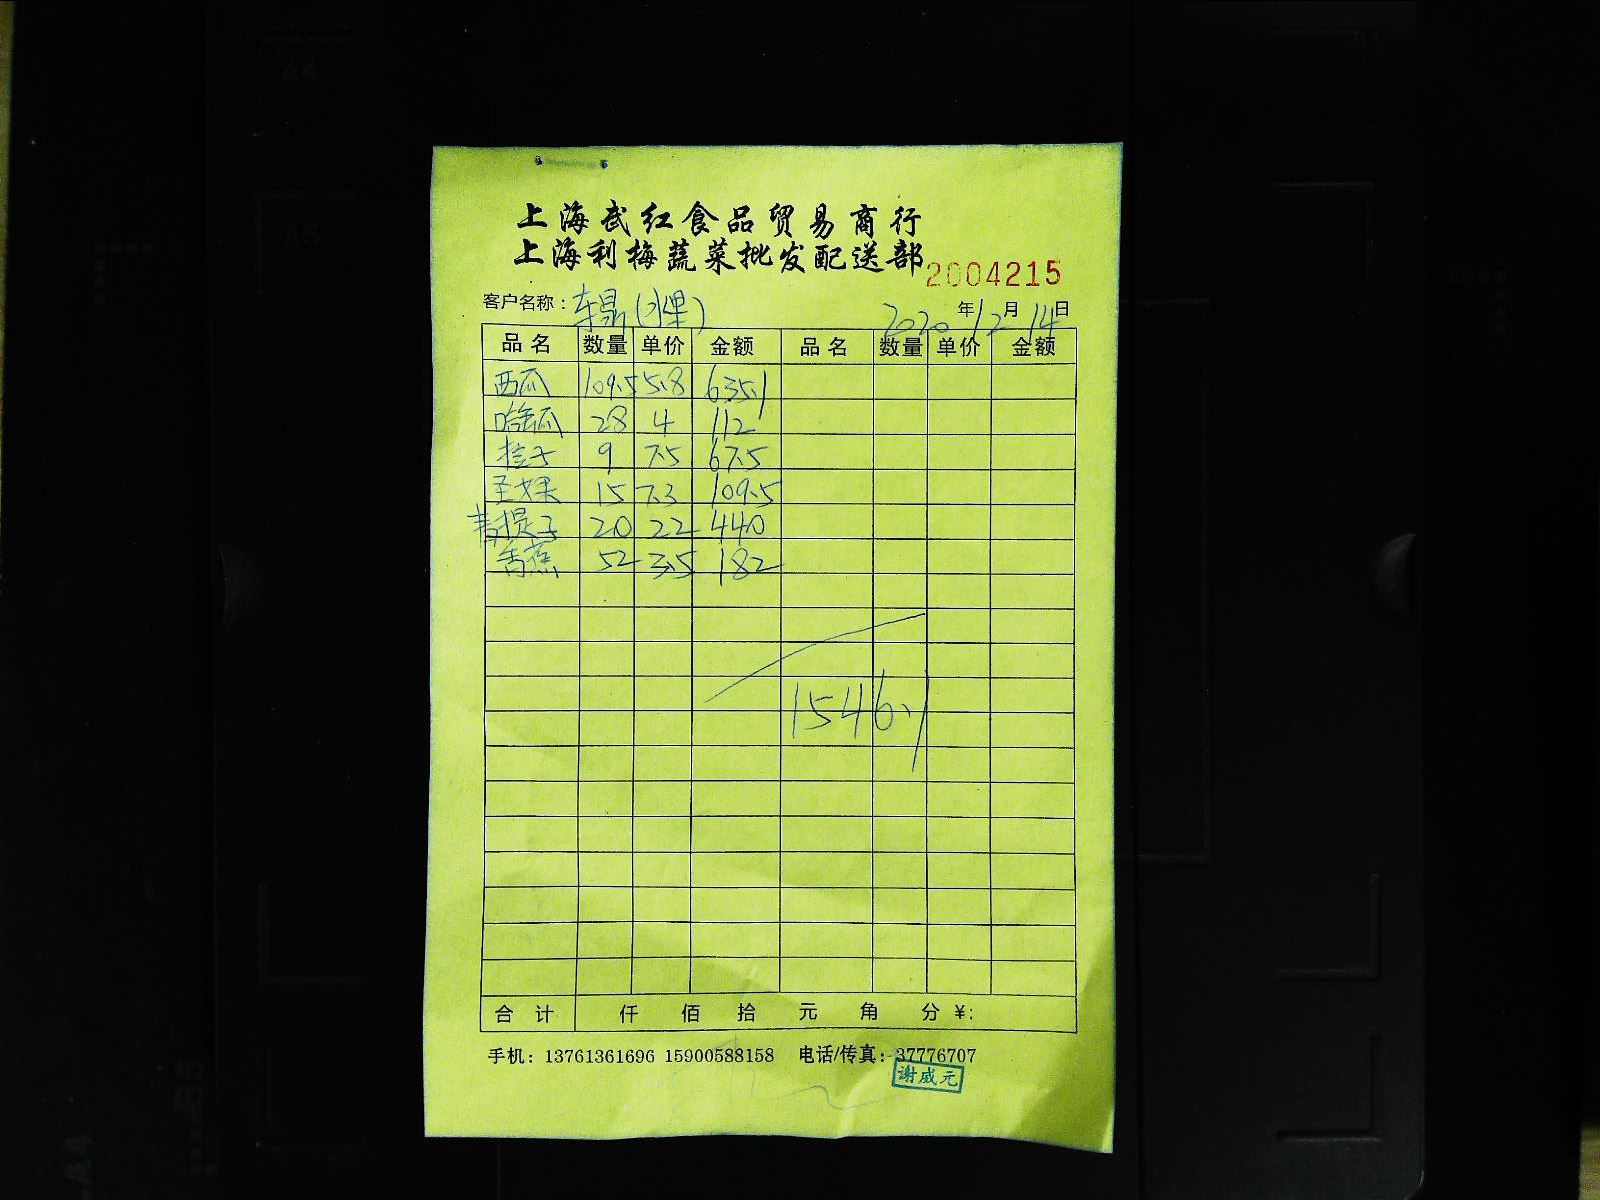 上海武红食品贸易商行
上海利梅蔬菜批发配送部
2004215
客户名称：车鼎(水果) 2020年12月14日
品名 数量 单价 金额 品名 数量 单价 金额
西瓜 109.5 5.8 635.1
哈密瓜 28 4 112
桔子 9 7.5 67.5
圣女果 15 7.3 109.5
青提子 20 22 440
香蕉 52 3.5 182
1546.1
合计 仟 佰 拾 元 角 分 ¥:
手机：13761361696 15900588158 电话/传真：37776707
谢威元
A4
A5